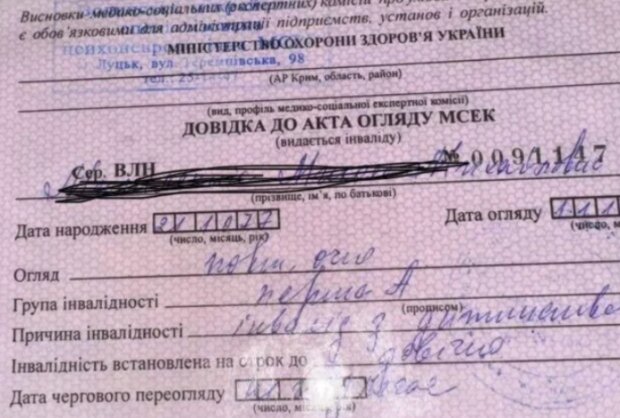 Висновки медико-соціальних (експертних) комісій
є обов'язковими для адміністрації підприємств, установ і організацій.
МІНІСТЕРСТВО ОХОРОНИ ЗДОРОВ'Я УКРАЇНИ
Луцьк, вул. 98
тел.
(АР Крим, область, район)
(вид, профіль медико-соціальної експертної комісії)
ДОВІДКА ДО АКТА ОГЛЯДУ МСЕК
(видається інваліду)
Сер. ВЛН № 0091147
(прізвище, ім'я, по батькові)
Дата народження 211077 Дата огляду 111
(число, місяць, рік) (число, м
Огляд повт, очно
Група інвалідності перша А
(прописом)
Причина інвалідності інвалід з дитинства
Інвалідність встановлена на строк до довічно
Дата чергового переогляду
(число, місяць, рік)